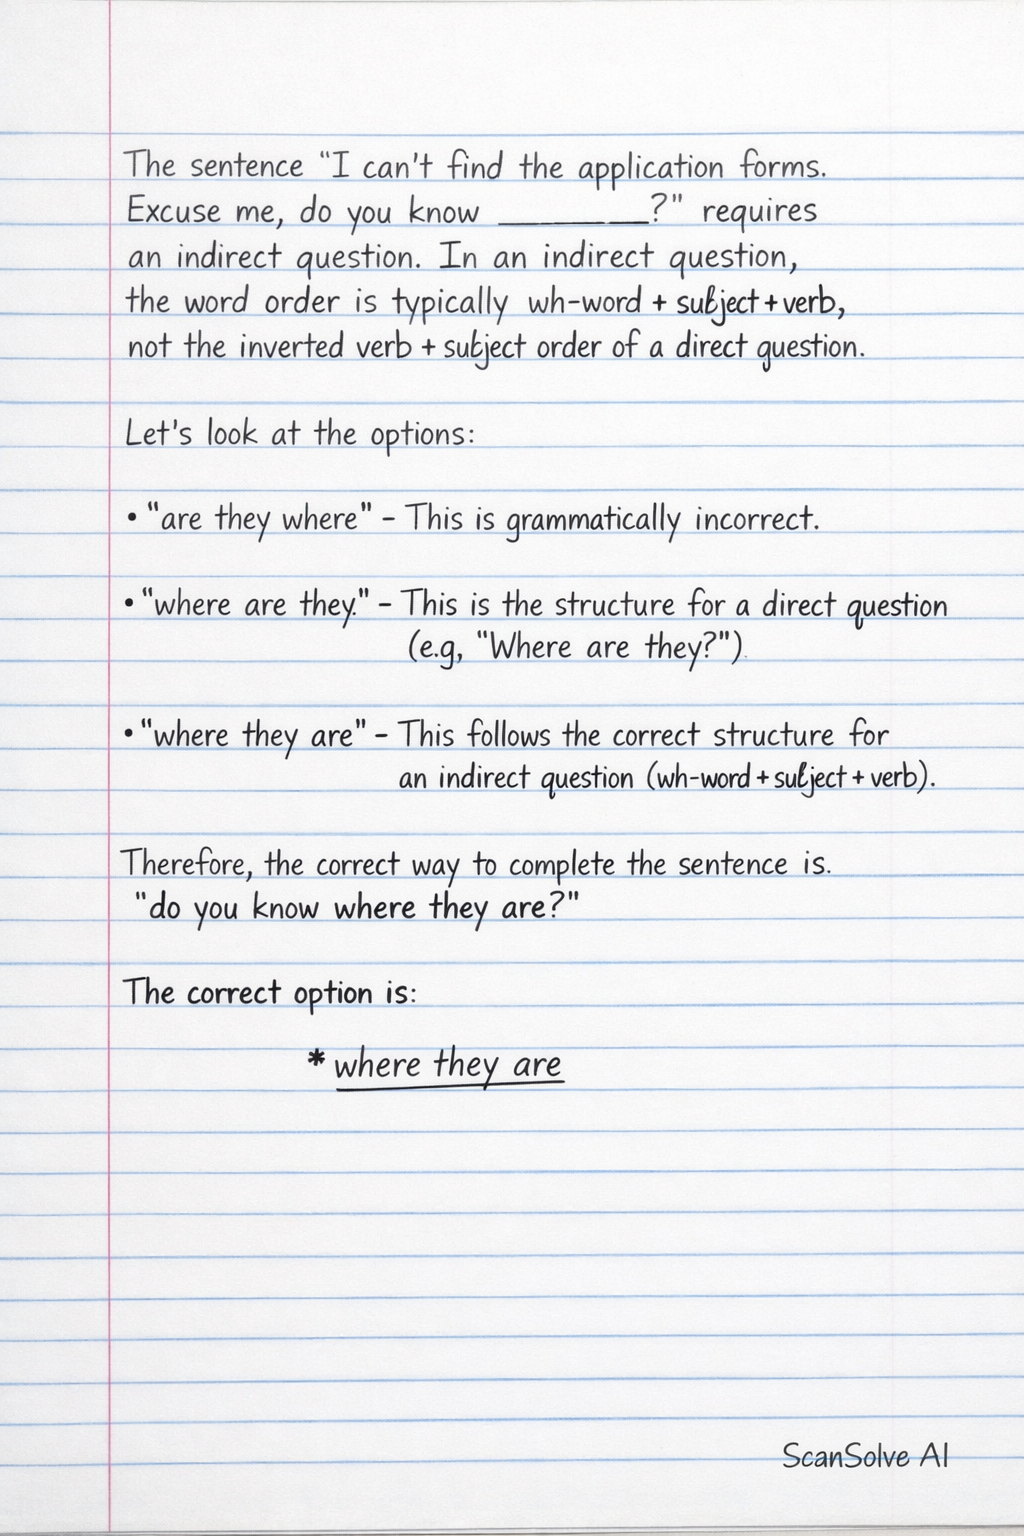 The sentence "I can't find the application forms.
Excuse me, do you know ________?" requires
an indirect question. In an indirect question,
the word order is typically wh-word + subject + verb,
not the inverted verb + subject order of a direct question.
Let's look at the options:
• "are they where" - This is grammatically incorrect.
• "where are they." - This is the structure for a direct question
(e.g, "Where are they?").
• "where they are" - This follows the correct structure for
an indirect question (wh-word + subject + verb).
Therefore, the correct way to complete the sentence is.
"do you know where they are?"
The correct option is:
* where they are
ScanSolve AI